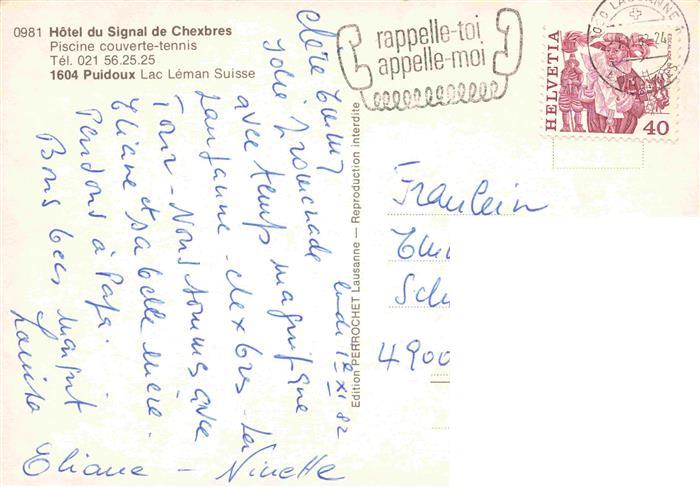 0981 Hôtel du Signal de Chexbres
Piscine couverte-tennis
Tél. 021 56.25.25
1604 Puidoux Lac Léman Suisse
rappelle-toi
appelle-moi
HELVETIA
40
LAUSANNE 1
Edition PERROCHET Lausanne — Reproduction interdite
lundi 1er XI 82
Jolie Promenade
avec temps magnifique
Lausanne - Chexbres - La
Tour - Nous sommes avec
Eliane et sa belle mère.
Pendons à Papa.
Bons becs
Eliane - Ninette
Fräulein
4900